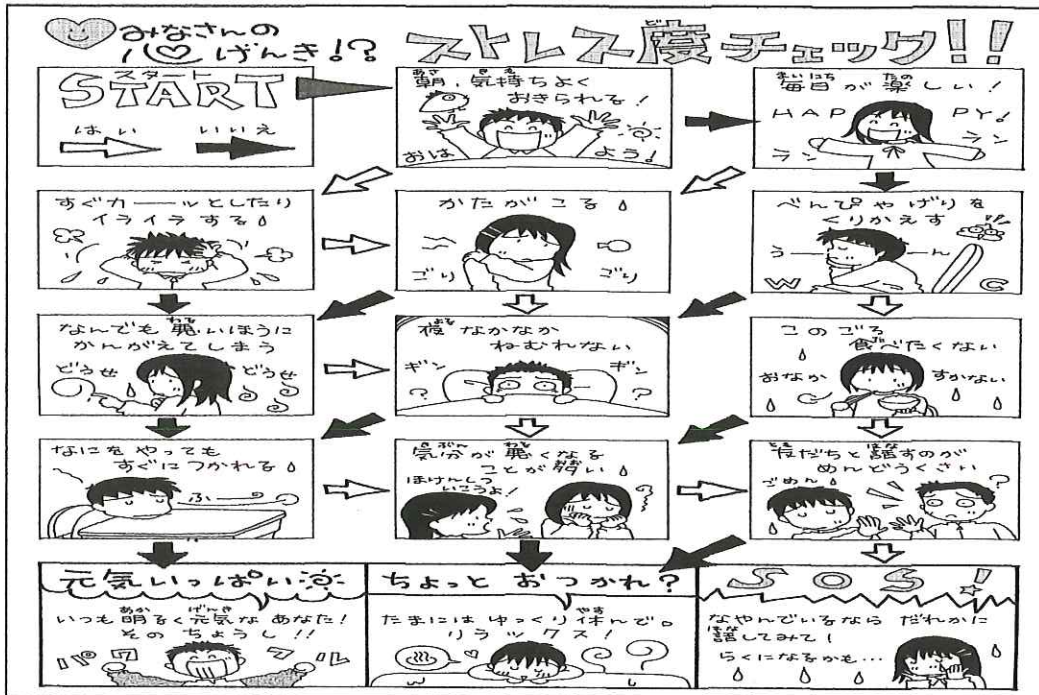 みなさんの
心 げんき!?
ストレス度チェック!!
スタート
START
はい いいえ
朝、気持ちよく
おきられる!
おはよう!
毎日が楽しい!
HAPPY!
ラン ラン
すぐカーッとしたり
イライラする
かたがこる
ゴリ ゴリ
べんぴやげりを
くりかえす
うーーん
W C
なんでも悪いほうに
かんがえてしまう
どうせ どうせ
夜なかなか
ねむれない
ギン ギン
? ?
このごろ
食べたくない
おなか すかない
なにをやっても
すぐにつかれる
ふー
気分が悪くなる
ことが多い
ほけんしつ
いこうよ!
友だちと話すのが
めんどうくさい
ごめん
?
元気いっぱい
いつも明るく元気なあなた!
そのちょうし!!
パワフル
ちょっとおつかれ?
たまにはゆっくり休んで。
リラックス!
SOS!
なやんでいるならだれかに
話してみて!
らくになるかも…